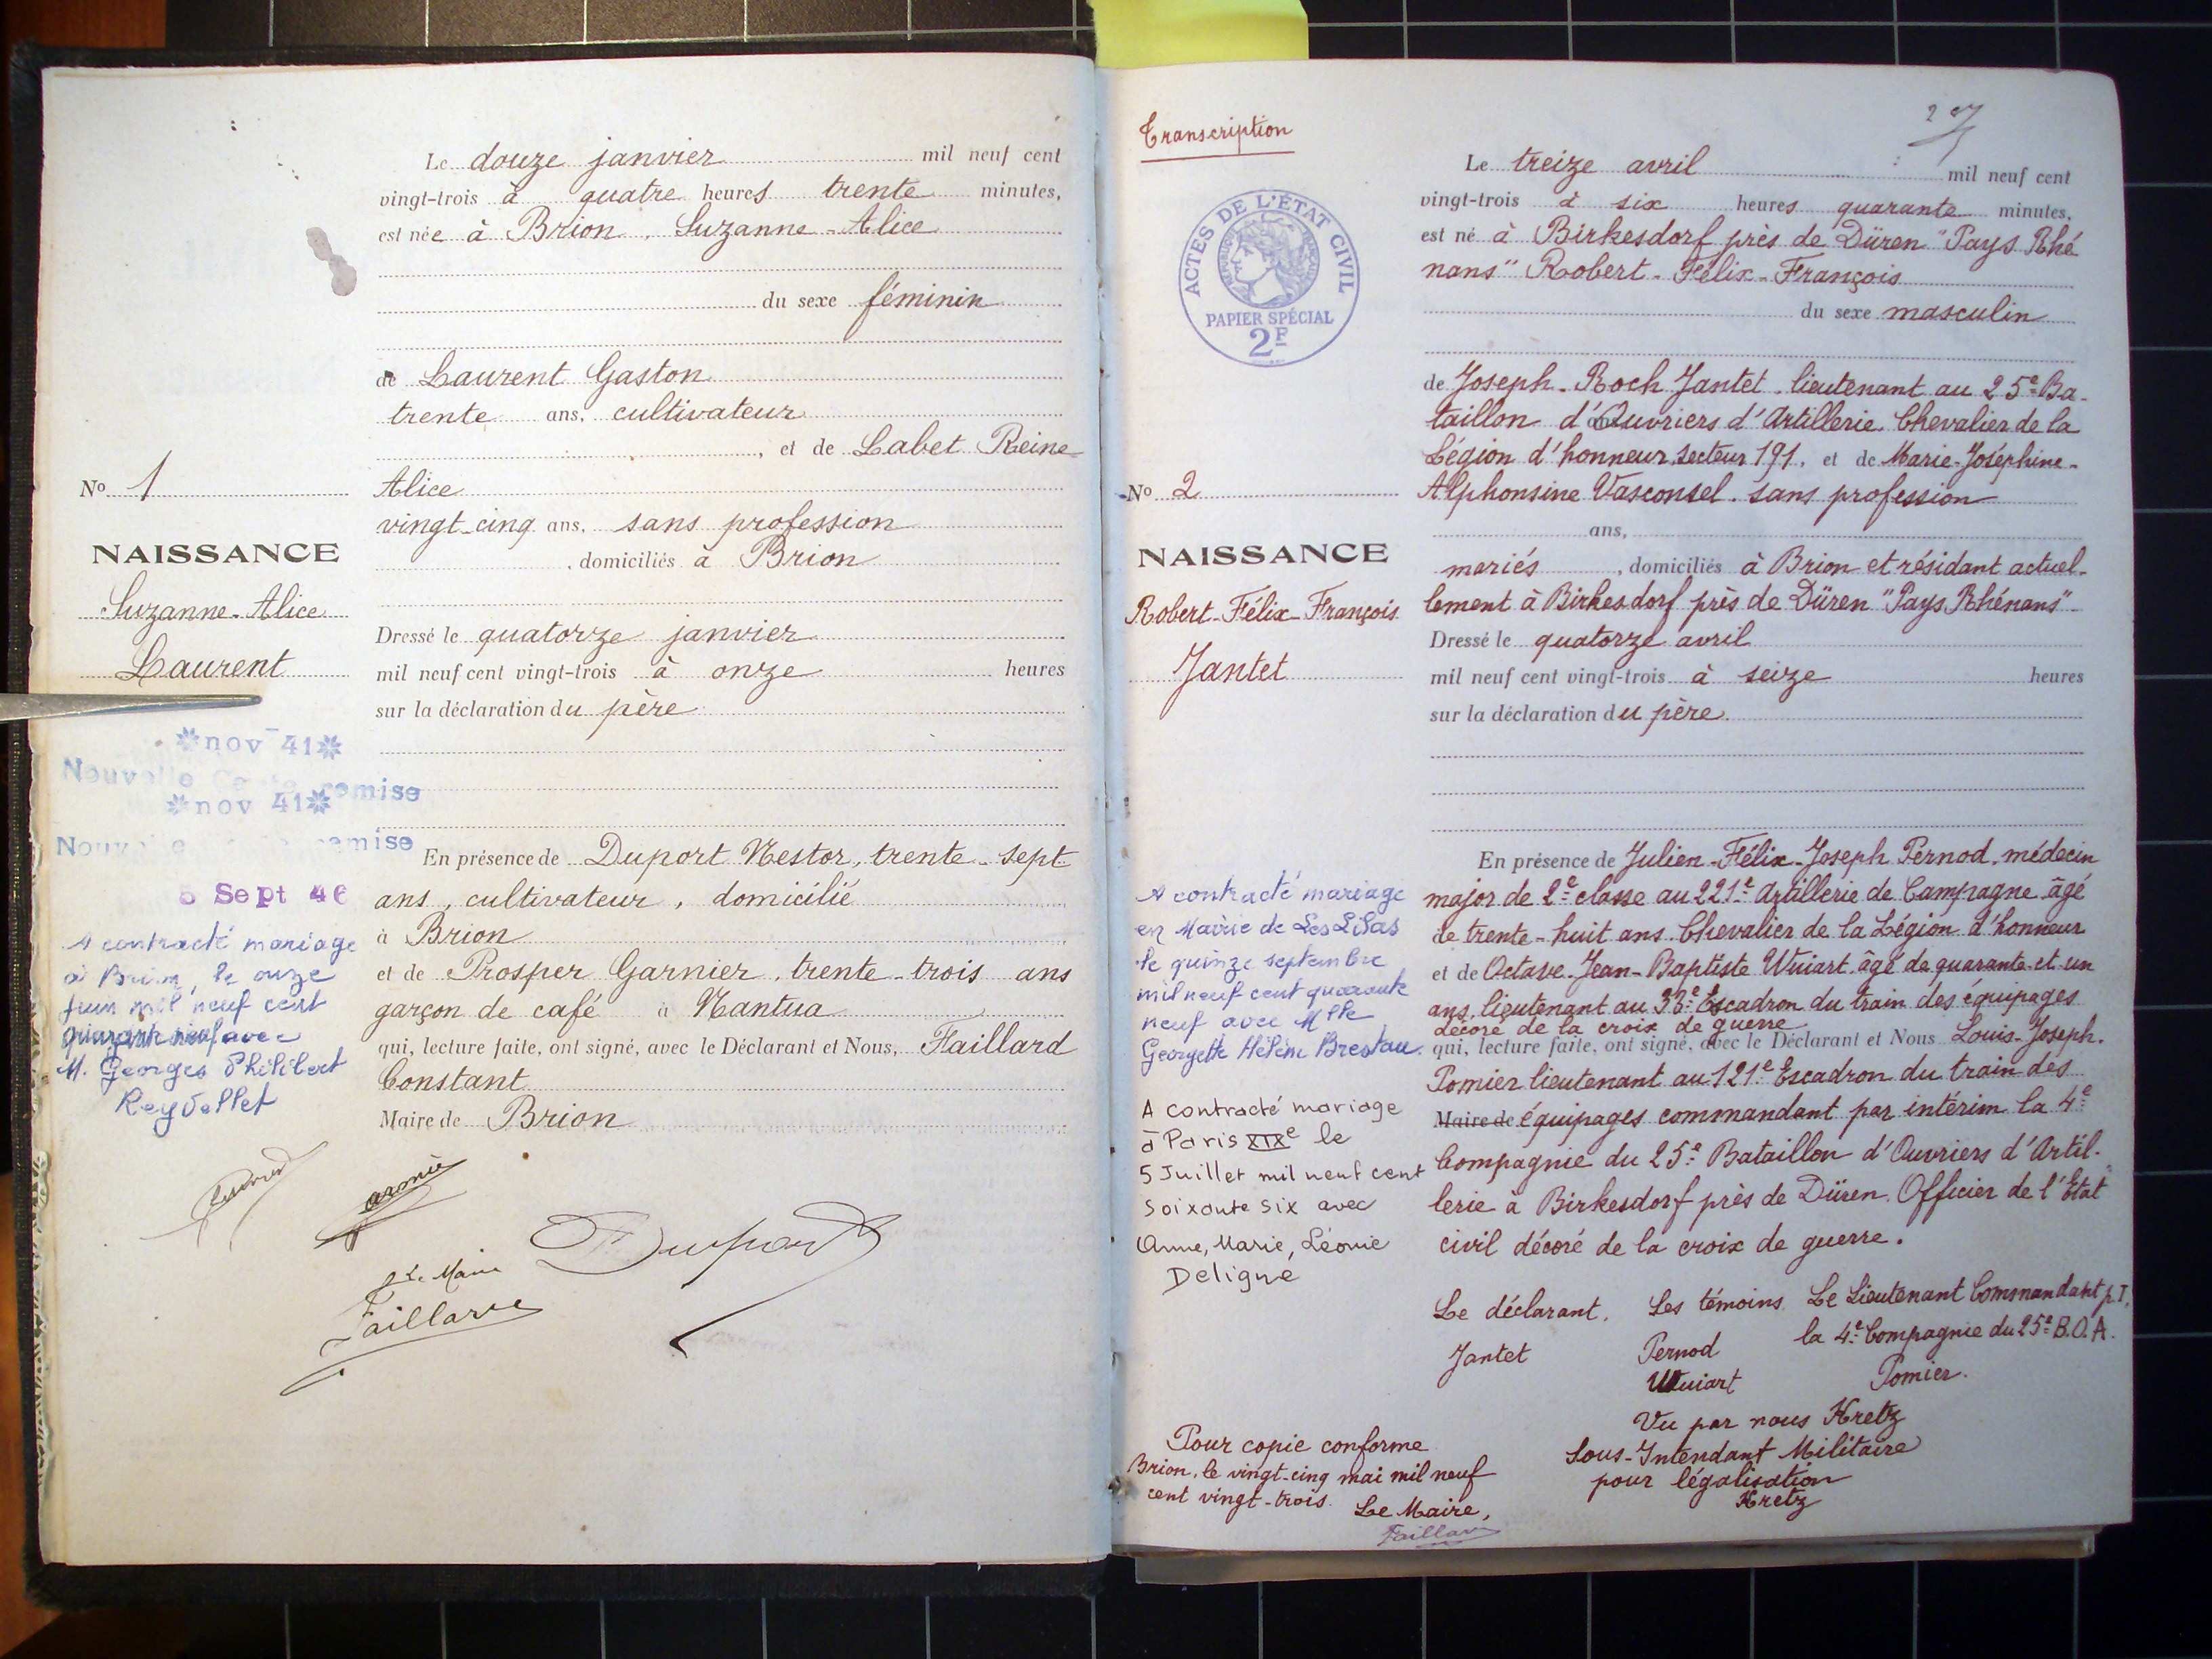 Le douze janvier mil neuf cent
vingt-trois à quatre heures trente minutes,
est née à Brion, Suzanne-Alice
du sexe féminin
de Laurent Gaston
trente ans, cultivateur
, et de Labet Reine
Alice
vingt-cinq ans, sans profession
, domiciliés à Brion
Dressé le quatorze janvier
mil neuf cent vingt-trois à onze heures
sur la déclaration du père
En présence de Duport Nestor, trente-sept
ans, cultivateur, domicilié
à Brion
et de Prosper Garnier, trente-trois ans
garçon de café à Nantua
qui, lecture faite, ont signé, avec le Déclarant et Nous, Faillard
Constant
Maire de Brion
No 1
NAISSANCE
Suzanne-Alice
Laurent
nov 41
Nouvelle remise
nov 41
remise
Sept 46
A contracté mariage
à Brion, le onze
juin mil neuf cent
quarante neuf avec
M. Georges Philibert
Reydellet
Le Maire
Faillard
Duport
27
Transcription
ACTES DE L'ÉTAT CIVIL
PAPIER SPÉCIAL
2F
Le treize avril mil neuf cent
vingt-trois à six heures quarante minutes,
est né à Birkesdorf près de Düren "Pays Rhé
nans" Robert-Félix-François
du sexe masculin
de Joseph-Roch Jantet, lieutenant au 25e Ba-
taillon d'Ouvriers d'Artillerie, Chevalier de la
Légion d'honneur, secteur 191, et de Marie-Joséphine-
Alphonsine Vasconsel, sans profession
ans,
mariés, domiciliés à Brion et résidant actuel-
lement à Birkesdorf près de Düren "Pays Rhénans"
Dressé le quatorze avril
mil neuf cent vingt-trois à seize heures
sur la déclaration du père.
En présence de Julien-Félix-Joseph Pernod, médecin
major de 2e classe au 221e Artillerie de Campagne âgé
de trente-huit ans Chevalier de la Légion d'honneur
et de Octave-Jean-Baptiste Wuiart âgé de quarante et un
ans, lieutenant au 33e Escadron du train des équipages
décoré de la croix de guerre
qui, lecture faite, ont signé, avec le Déclarant et Nous Louis-Joseph.
Pomier lieutenant au 121e Escadron du train des
Maire de équipages commandant par intérim la 4e
Compagnie du 25e Bataillon d'Ouvriers d'Artil-
lerie à Birkesdorf près de Düren. Officier de l'Etat
civil décoré de la croix de guerre.
No 2
NAISSANCE
Robert-Félix-François
Jantet
A contracté mariage
en Mairie de Les Lilas
le quinze septembre
mil neuf cent quarante
neuf avec Mlle
Georgette Hélène Brestau.
A contracté mariage
à Paris XIXe le
5 Juillet mil neuf cent
soixante six avec
Anne, Marie, Léonie
Deligne
Le déclarant. Les témoins. Le Lieutenant Commandant p.I.
la 4e Compagnie du 25e B.O.A.
Jantet Pernod
Wuiart Pomier.
Vu par nous Kretz
Sous-Intendant Militaire
pour légalisation
Kretz
Pour copie conforme
Brion, le vingt-cinq mai mil neuf
cent vingt-trois. Le Maire,
Faillard